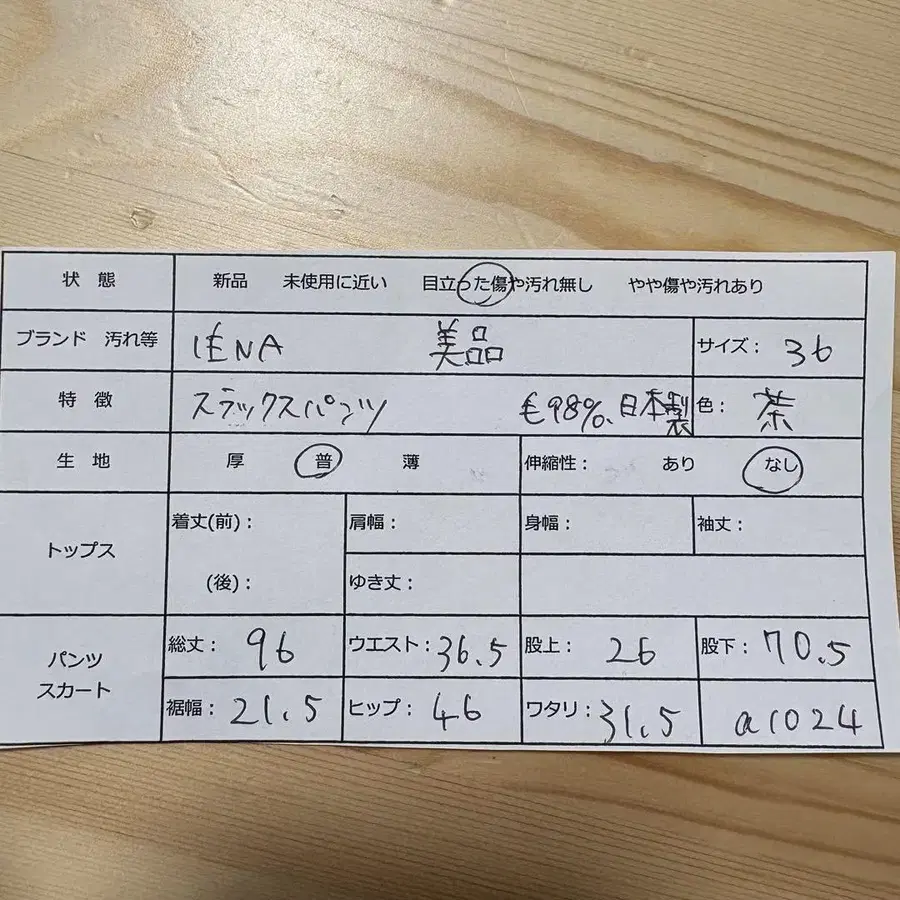 状 態 新品 未使用に近い 目立った傷や汚れ無し やや傷や汚れあり
ブランド 汚れ等 IENA 美品 サイズ： 36
特 徴 スラックスパンツ 毛98%、日本製 色： 茶
生 地 厚 普 薄 伸縮性： あり なし
トップス 着丈(前)： 肩幅： 身幅： 袖丈：
(後)： ゆき丈：
パンツ スカート 総丈： 96 ウエスト： 36.5 股上： 26 股下： 70.5
裾幅： 21.5 ヒップ： 46 ワタリ： 31.5 a1024